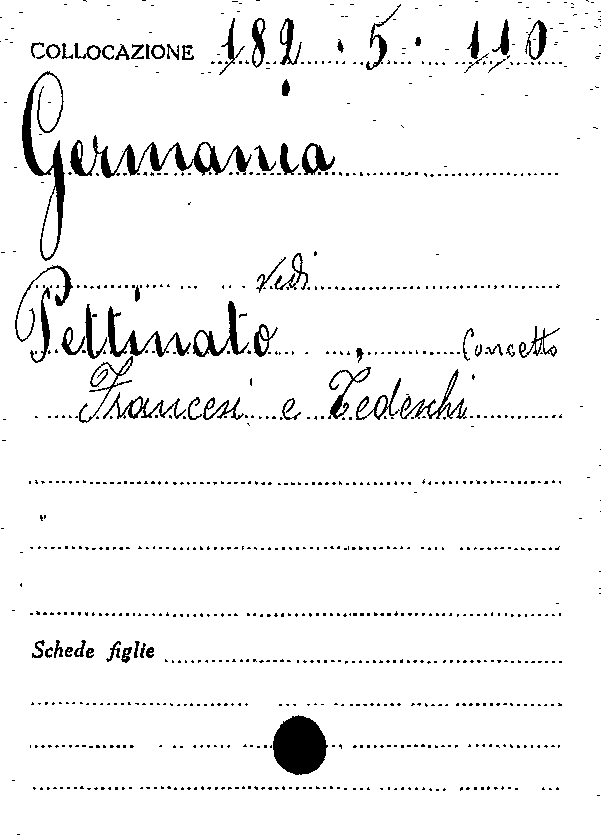 COLLOCAZIONE 182.5.110
Germania
vedi
Pettinato, Concetto
Francesi e Tedeschi
Schede figlie